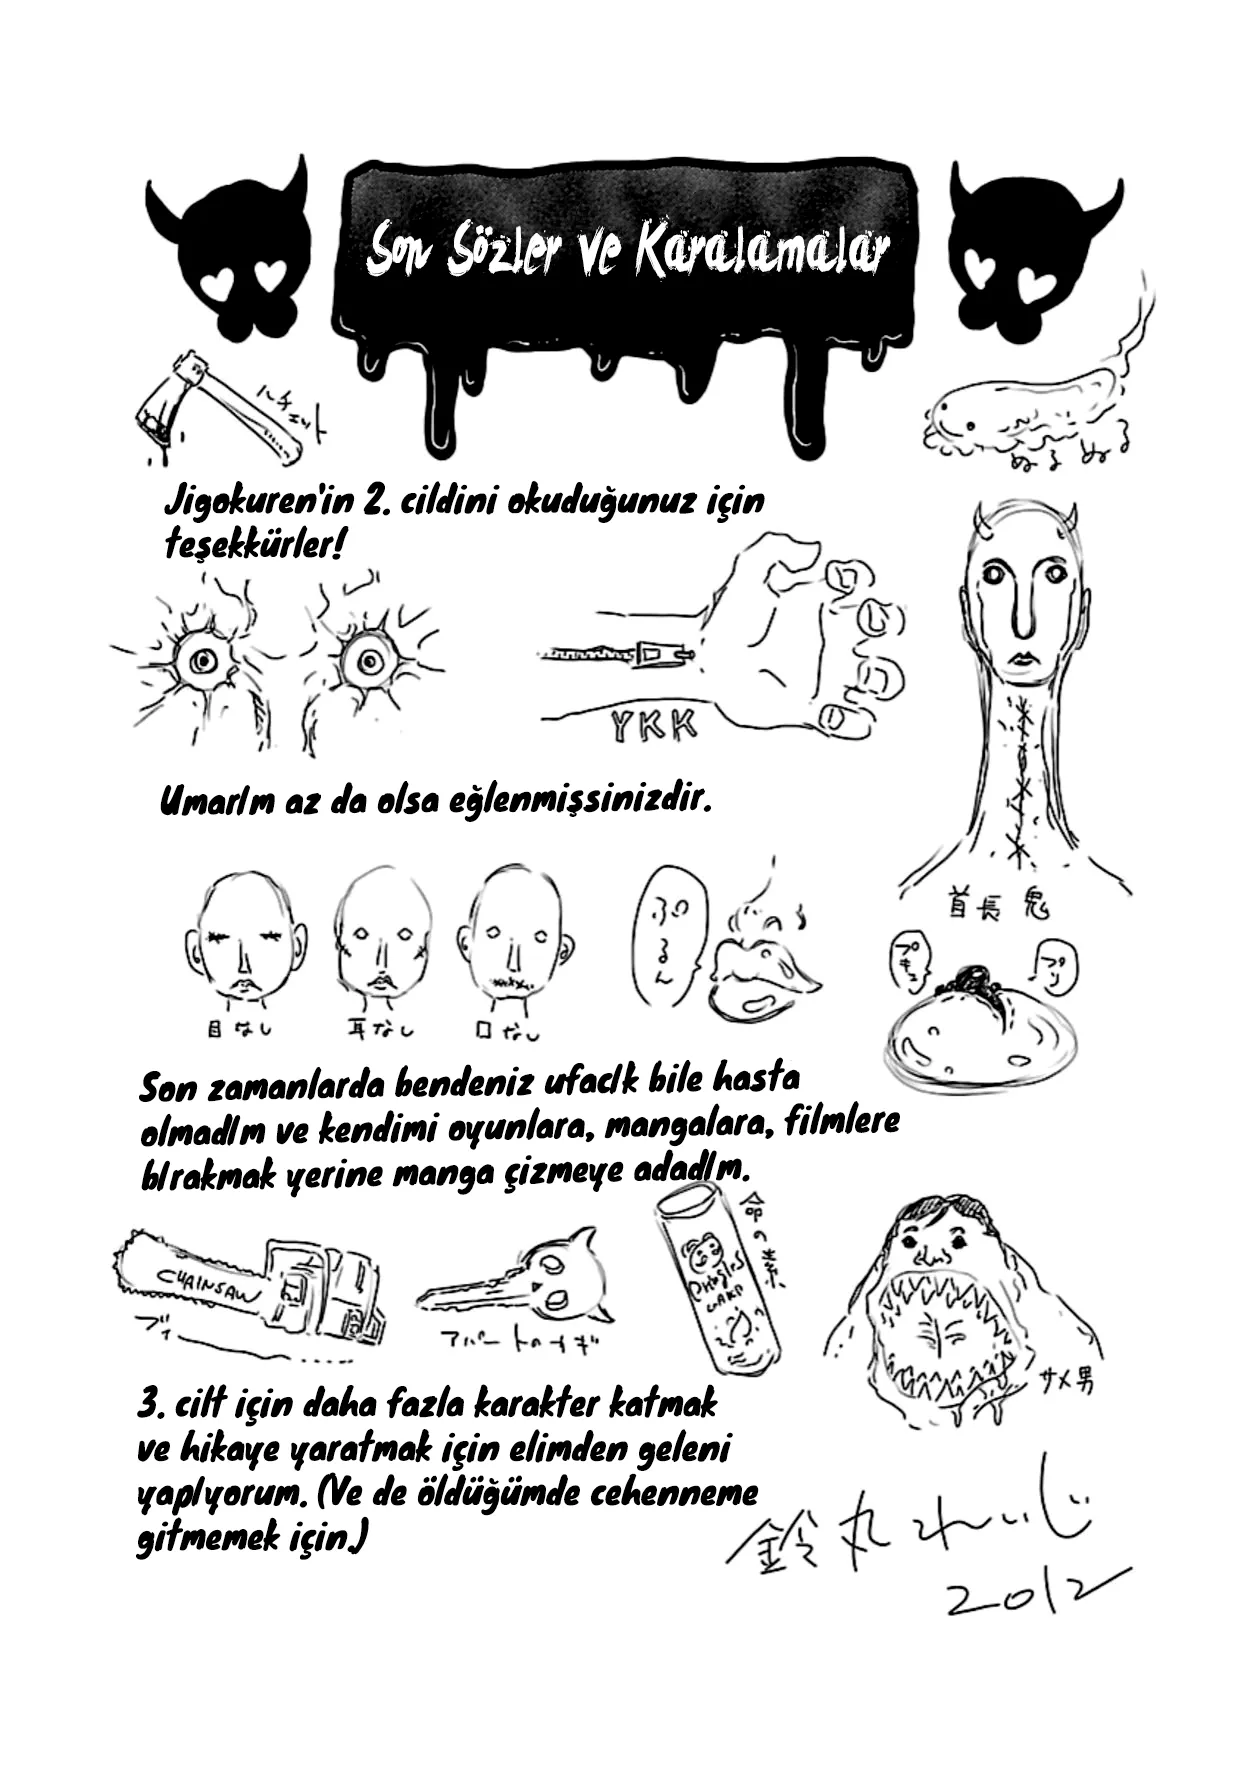 Son Sözler ve Karalamalar
ハチェット
ぬるぬる
Jigokuren'in 2. cildini okuduğunuz için
teşekkürler!
YKK
Umarım az da olsa eğlenmişsinizdir.
首長鬼
ぷるん
プキュ
プリ
目なし
耳なし
口なし
Son zamanlarda bendeniz ufacık bile hasta
olmadım ve kendimi oyunlara, mangalara, filmlere
bırakmak yerine manga çizmeye adadım.
命の素
CHAINSAW
アパートのカギ
サメ男
3. cilt için daha fazla karakter katmak
ve hikaye yaratmak için elimden geleni
yapıyorum. (Ve de öldüğümde cehenneme
gitmemek için.)
鈴丸れいじ
2012